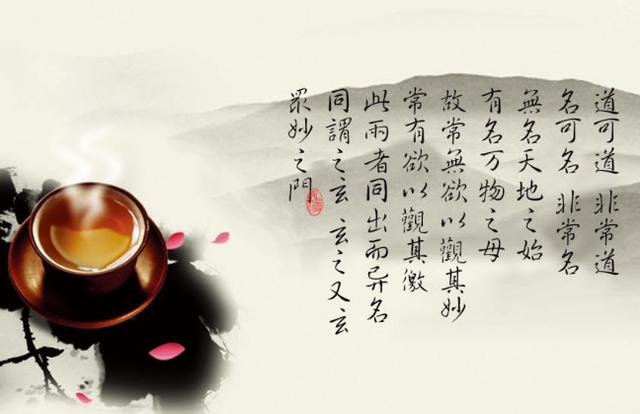 道可道 非常道
名可名 非常名
無名天地之始
有名万物之母
故常無欲以觀其妙
常有欲以觀其徼
此兩者同出而异名
同謂之玄 玄之又玄
眾妙之門